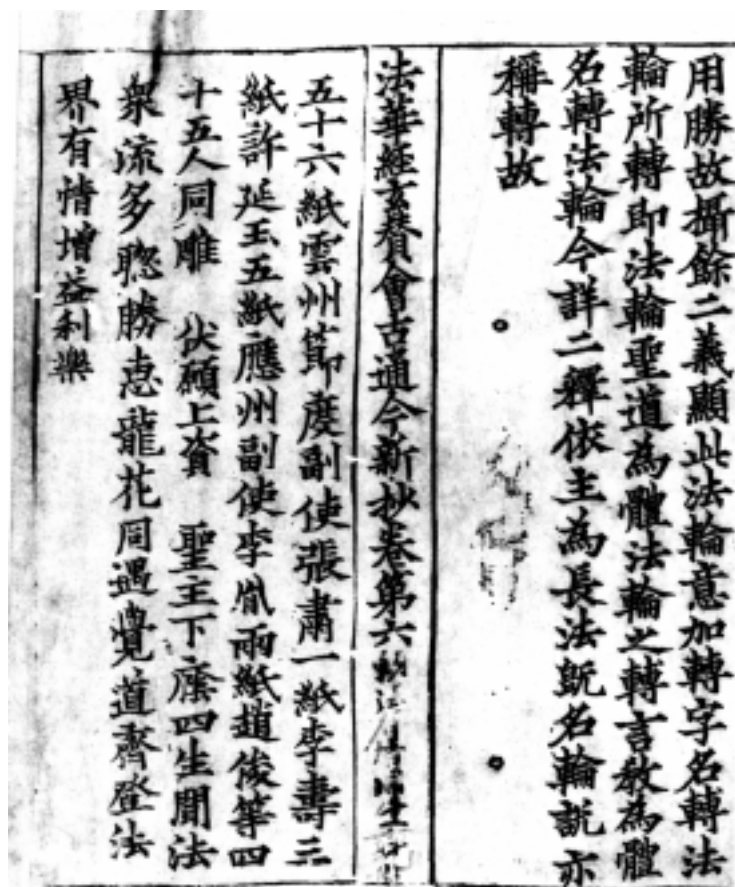 用勝故攝餘二義顯此法輪意加轉字名轉法
輪所轉即法輪聖道為體法輪之轉言教為體
名轉法輪今詳二釋依主為長法既名輪說亦
稱轉故
法華經玄贊會古通今新抄卷第六
五十六紙雲州節度副使張肅一紙李壽三
紙許延玉五紙應州副使李胤兩紙趙俊等四
十五人同雕 伏願上資 聖主下廕四生聞法
衆流多聦勝惠龍花同遇覺道齊登法
界有情增益利樂